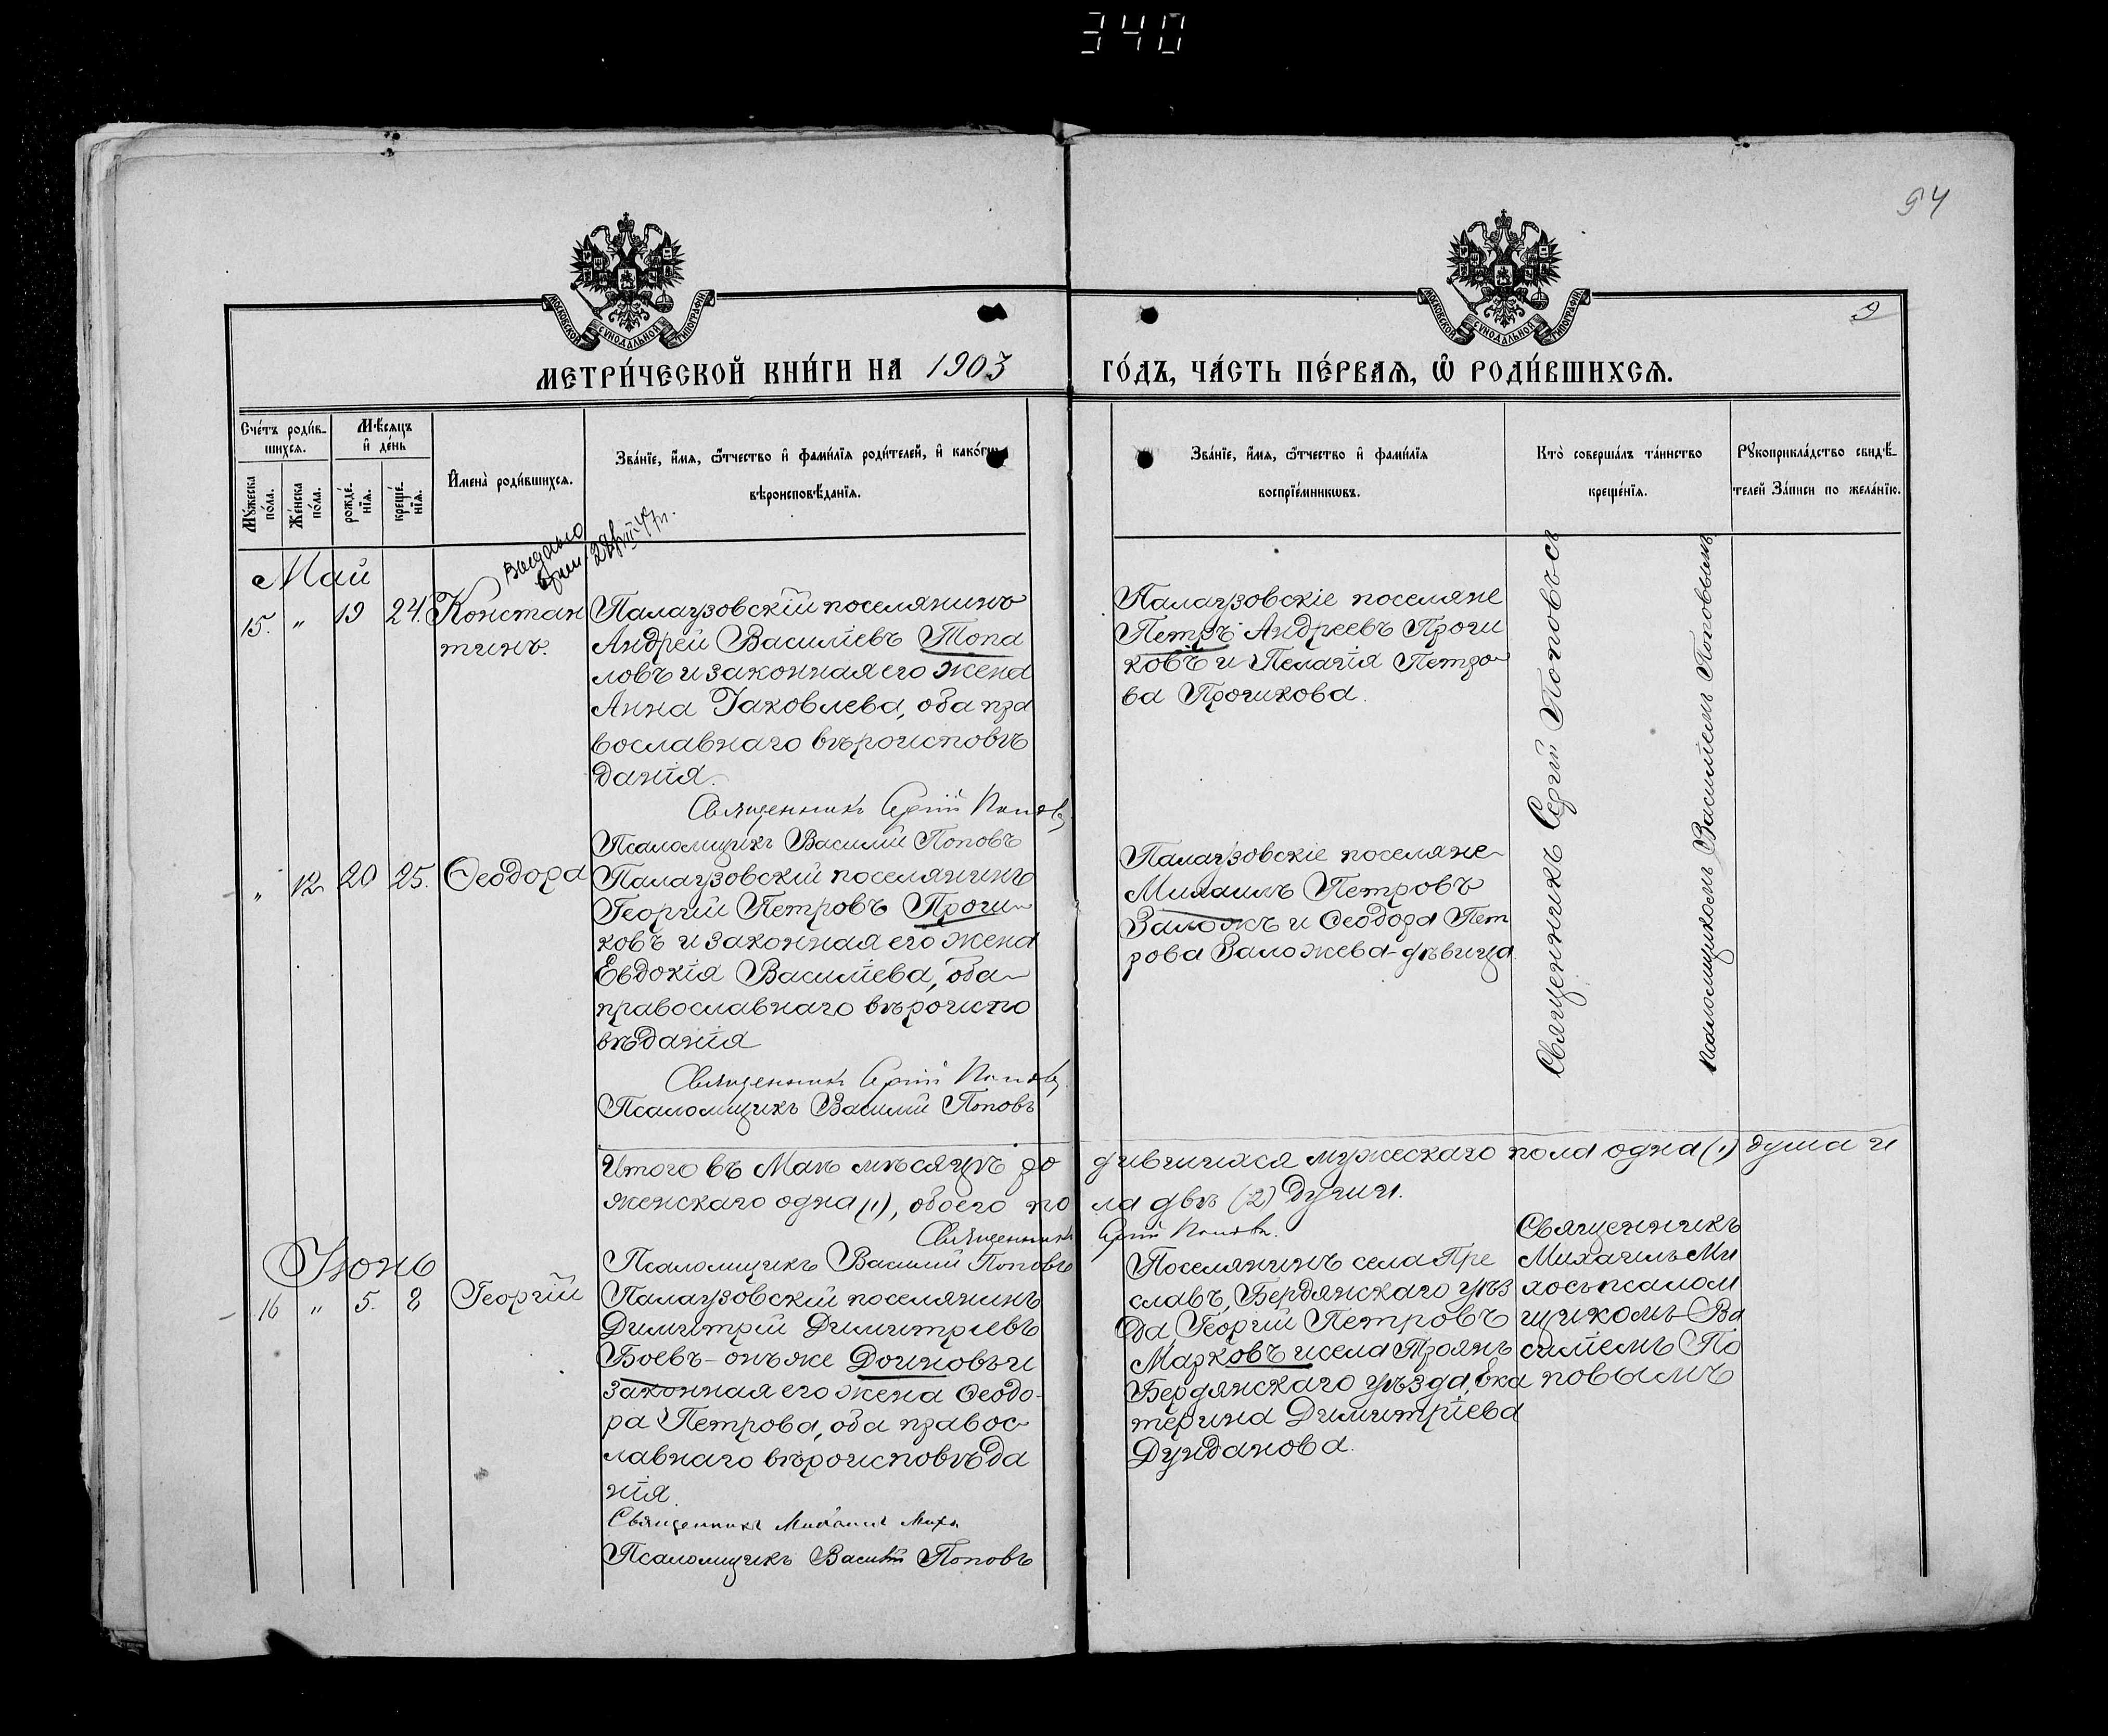 340
94
9
МОСКОВСКОЙ СѴНОДАЛЬНОЙ ТИПОГРАФІИ
МОСКОВСКОЙ СѴНОДАЛЬНОЙ ТИПОГРАФІИ
МЕТРИ́ЧЕСКОЙ КНИ́ГИ НА 1903 ГО́ДЪ, ЧА́СТЬ ПЕ́РВАѦ, Ѽ РОДИ́ВШИХСѦ.
Сче́тъ роди́в-
шихсѧ.
Мꙋжеска по́ла.
Же́нска по́ла.
Мѣ́сѧцъ и҆ де́нь
рожде́-нїѧ.
креще́-нїѧ.
И҆мена̀ роди́вшихсѧ.
Зва́нїе, и҆́мѧ, ѻ҆́тчество и҆ фами́лїѧ роди́телей, и҆ како́гѡ
вѣроисповѣ́данїѧ.
Зва́нїе, и҆́мѧ, ѻ҆́тчество и҆ фами́лїѧ
воспрїе́мникѡвъ.
Кто̀ соверша́лъ та́инство
креще́нїѧ.
Рꙋкоприкла́дство свидѣ́-
телей За́писи по жела́нїю.
Май
15. " 19 24. Констан
тинъ.
Палаузовскій поселянинъ
Андрей Василіевъ Топа
ловъ и законная его жена
Анна Іаковлева, оба пра
вославнаго вѣроисповѣ
данія.
Священникъ Сергій Поповъ
Псаломщикъ Василій Поповъ
Палаузовскіе поселяне
Петръ Андреевъ Прочи
ковъ и Пелагія Петро
ва Прочикова.
Священникъ Сергій Поповъ съ
псаломщикомъ Василіемъ Поповымъ
" 12 20 25. Ѳеодора
Палаузовскій поселянинъ
Георгій Петровъ Прочи
ковъ и законная его жена
Евдокія Василіева, оба
православнаго вѣроиспо
вѣданія
Священникъ Сергій Поповъ
Псаломщикъ Василій Поповъ
Палаузовскіе поселяне
Михаилъ Петровъ
Заложъ и Ѳеодора Пет
рова Заложева - дѣвица
Итого въ Маѣ мѣсяцѣ ро дившихся мужескаго пола одна (1) душа и
женскаго одна (1), обоего по ла двѣ (2) души.
Священникъ Сергій Поповъ.
Псаломщикъ Василій Поповъ
Іюнь
16 " 5. 8 Георгій
Палаузовскій поселянинъ
Димитрій Димитріевъ
Боевъ - онъ же Доиновъ и
законная его жена Ѳеодо-
ра Петрова, оба правос
лавнаго вѣроисповѣда
нія.
Священникъ Михаилъ Михо
Псаломщикъ Василій Поповъ
Поселянинъ села Пре
славъ, Бердянскаго уѣз
да, Георгій Петровъ
Марковъ и села Троянъ
Бердянскаго уѣзда, Ека
терина Димитріева
Дунданова.
Священникъ
Михаилъ Ми
хо съ псалом
щикомъ Ва
силіемъ По
повымъ